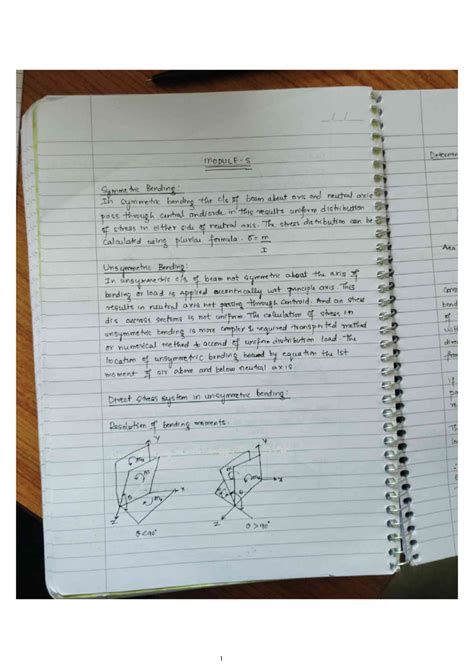 MODULE-5
Symmetric Bending:
In symmetric bending the c/s of beam about axis and neutral axis
pass through central and side in this results uniform distribution
of stress in either side of neutral axis. The stress distribution can be
calculated using formula σ=m/I
Unsymmetric Bending:
In unsymmetric c/s of beam not symmetric about the axis of
bending or load is applied eccentrically wrt principle axis This
results in neutral axis not passing through centroid. And an stress
dis across sections is not uniform. The calculation of stress in
unsymmetric bending is more complex & required method
or numerical method to accend of uniform distribution load. The
location of unsymmetric bending by equation the 1st
moment of above and below neutral axis.
Direct stress system in unsymmetric bending:
Resolution of bending moments.
Y
Y
M
X
X
θ
Z
Z
θ<90°
θ>90°
Determin
1